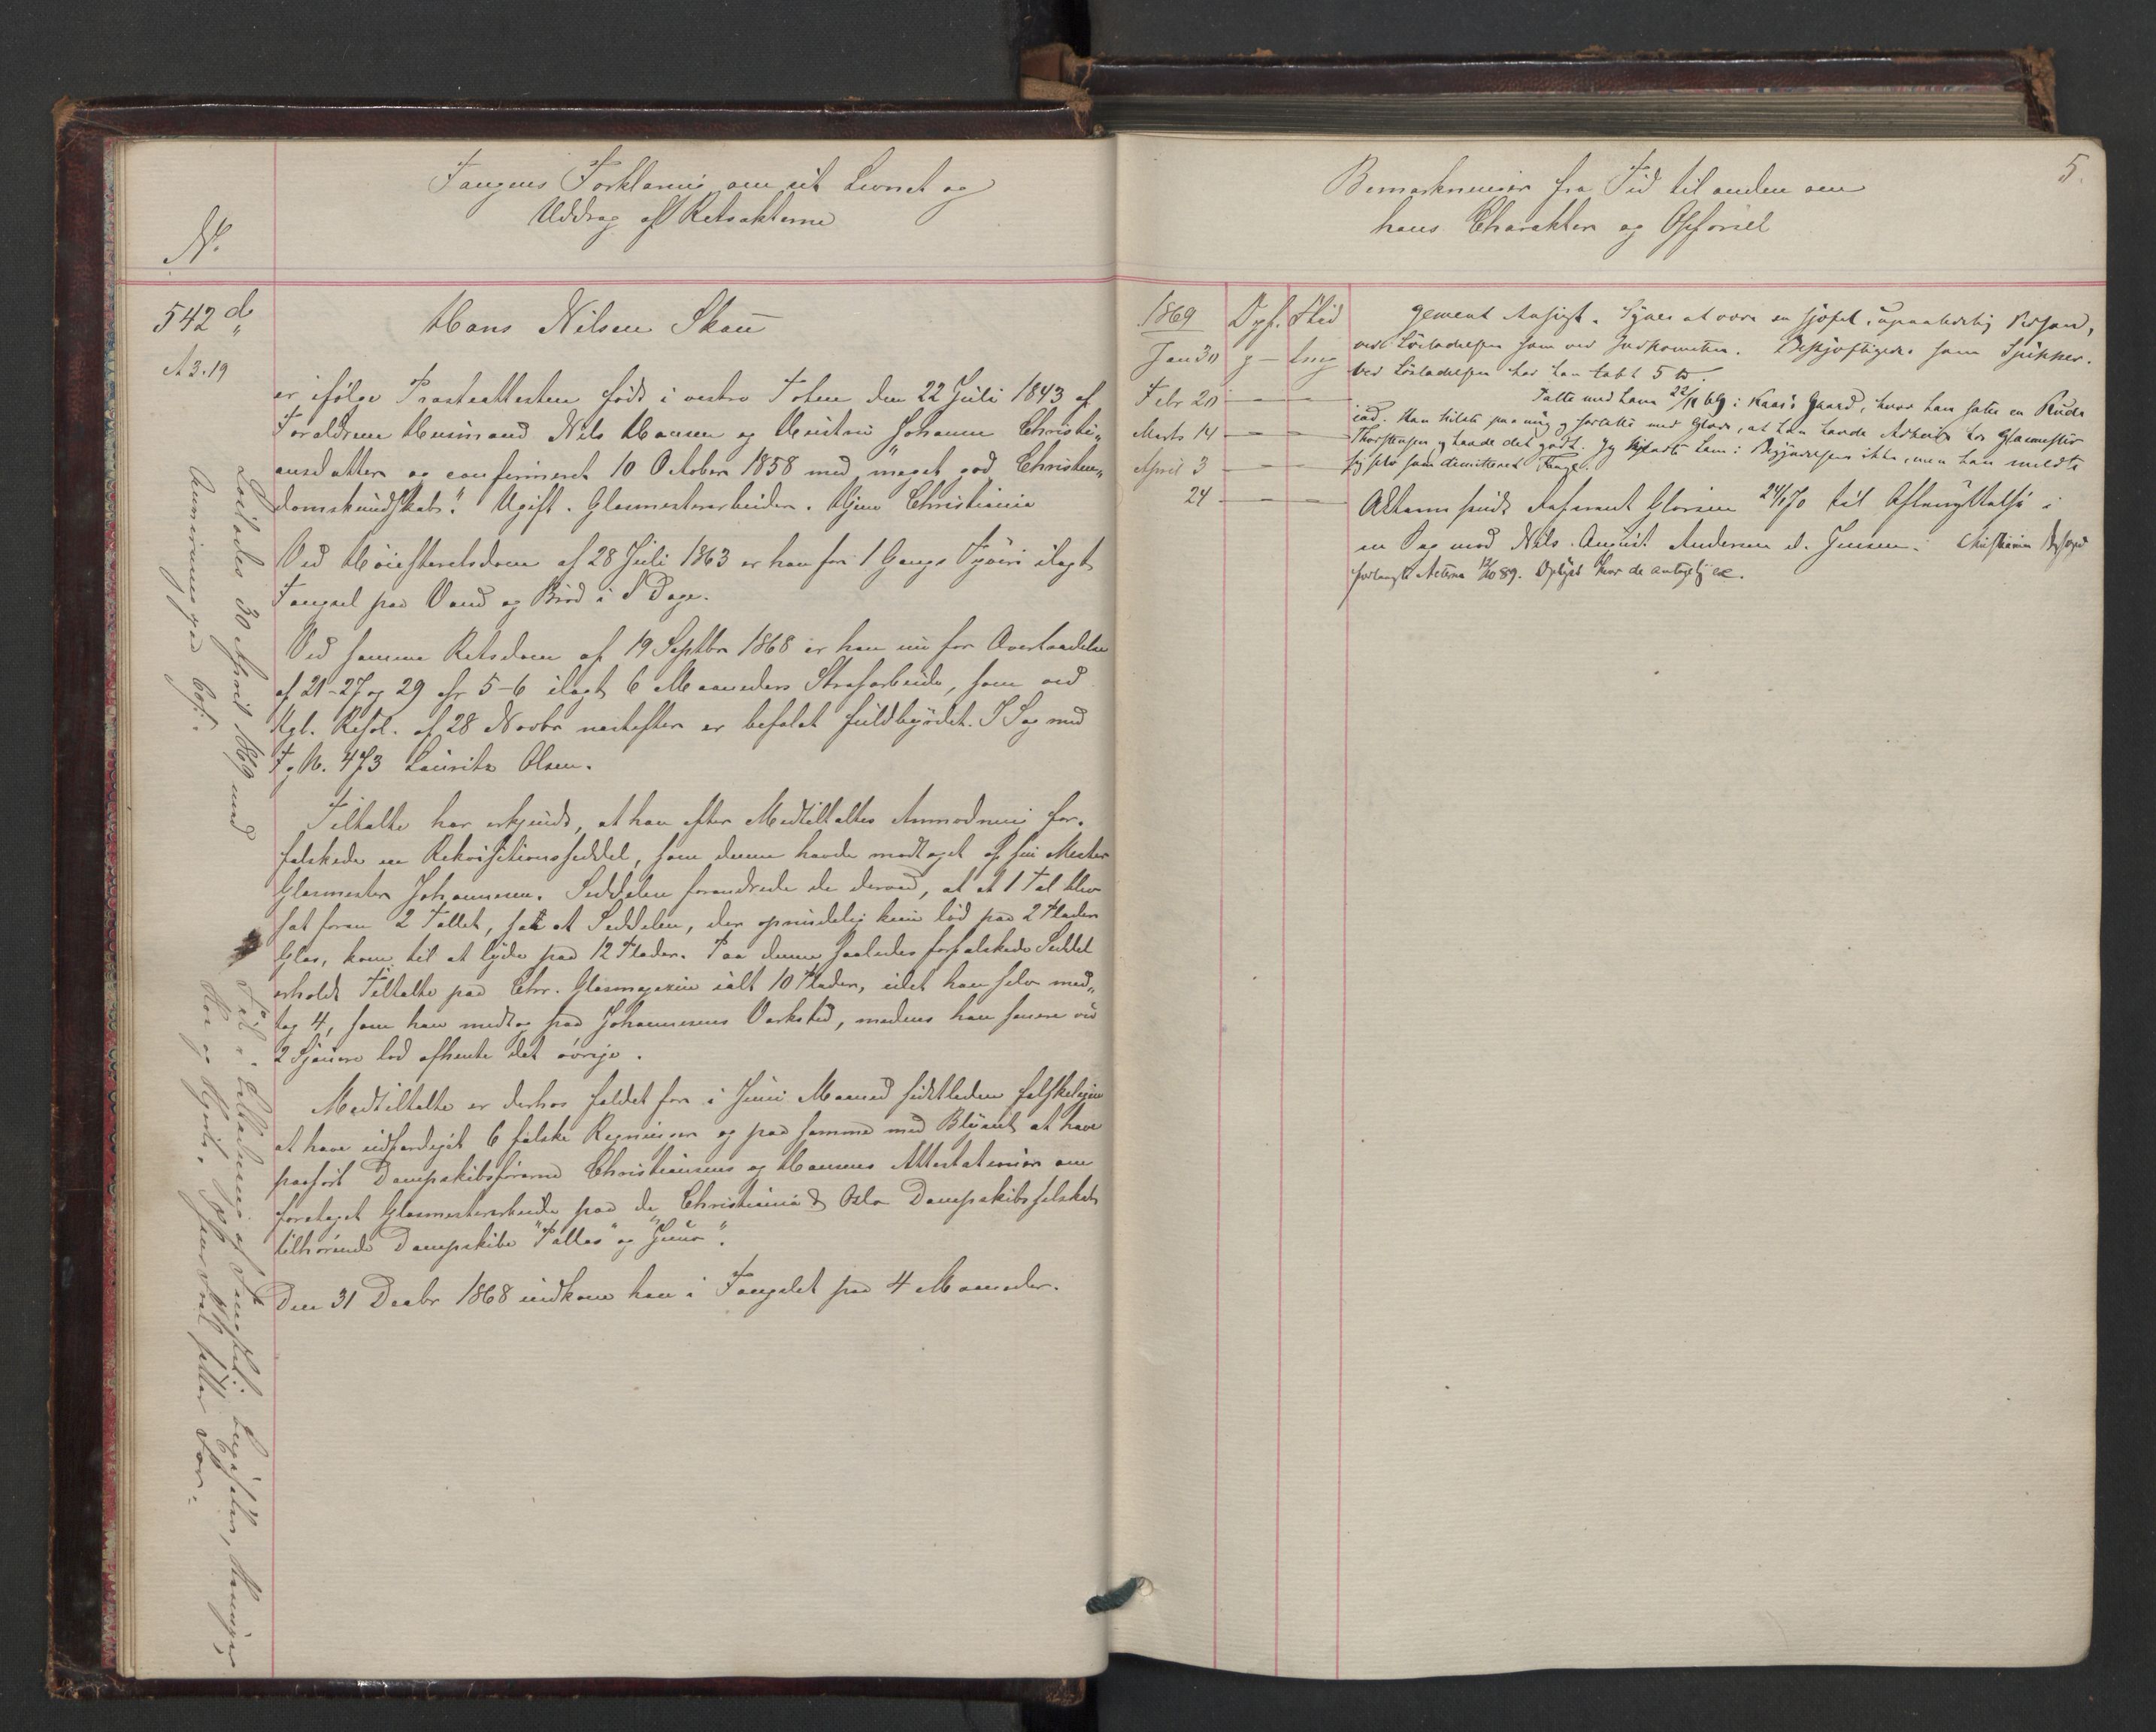 Fangens Forklaring om sit Levnet og
Uddrag af Retsakterne
N.
542 d.
A 3.19
Hans Nilsen Skau
er ifølge Præsteattesten født i vestre Toten den 22 Juli 1843 af
Forældrene Husmand Nils Hansen og Hustru Johanne Christi„
ansdatter og confirmeret 10 October 1858 med "meget god Christen„
domskundskab." Ugift. Glasmesterarbeider. Hjem Christiania
Ved Høiesteretsdom af 28 Juli 1863 er han for 1 Gangs Tyveri ilagt
Fængsel paa Vand og Brød i 5 Dage.
Ved samme Retsdom af 19 Septbr 1868 er han nu for Overtrædelse
af 21-27 og 29 cfr 5-6 ilagt 6 Maaneders Strafarbeide, som ved
Kgl. Resol. af 28 Novbr næstefter er befalet fuldbyrdet. I Sag med
Fg N. 473 Lauritz Olsen.
Tiltalte har erkjendt, at han efter Medtiltaltes Anmodning for„
falskede en Rekvisitionsseddel, som denne havde modtaget af sin Mester
Glasmester Johannesen. Seddelen forandrede de derved, at et 1 Tal blev
sat foran 2 Tallet, saa at Seddelen, der oprindelig kun lød paa 2 Plader
Glas, kom til at lyde paa 12 Plader. Paa denne saaledes forfalskede Seddel
erholdt Tiltalte paa Chr. Glasmagazin ialt 10 Plader, idet han selv med„
tog 4, som han medtog paa Johannesens Værksted, medens han senere ved
2 Sjouere lod afhente det øvrige.
Medtiltalte er derhos fældet for i Juni Maaned sidstleden falskeligen
at have udfærdiget 6 falske Regninger og paa samme med Blyant at have
paaført Dampskibsførerne Christiansens og Hansens Attestationer om
foretaget Glasmesterarbeide paa de Christiania & Oslo Dampskibsselskab
tilhørende Dampskibe "Pallas" og "Juno".
Den 31 Decbr 1868 indkom han i Fængslet paa 4 Maaneder.
Løslades 30 April 1869 med
Anvisning paa
Hør og Hjerte.
Bemærkninger fra Tid til anden om
hans Charakter og Opførsel
5.
1869 Opf. Flid
Jan 30 g – lmg
Febr 20 — —
Marts 14 — —
April 3 — —
24 — —
gement Ansigt. Synes at være en sjofel, upaalidelig Person,
ved Løsladelsen som ved Indkomsten. Beskjæftigedes som Snikker.
Ved Løsladelsen har han tabt 5 ℔.
Talte med ham 22/11 69 i Kaas's Gaard, hvor han satte en Rude
ind. Han hilste paa mig og fortalte med Glæde, at han havde Arbeide hos Glasmester
Thorstensen og havde det godt. Jeg kjendte ham i Begyndelsen ikke, men han meldte
sig selv som dimitteret Fange.
Akterne sendt Defensor 24/1 70 til Afbenyttelse i
en Sag mod Nils August Andersen d. Jensen. Christiania
forlangte Acterne 89. Oplyst hvor de antagelig ere.